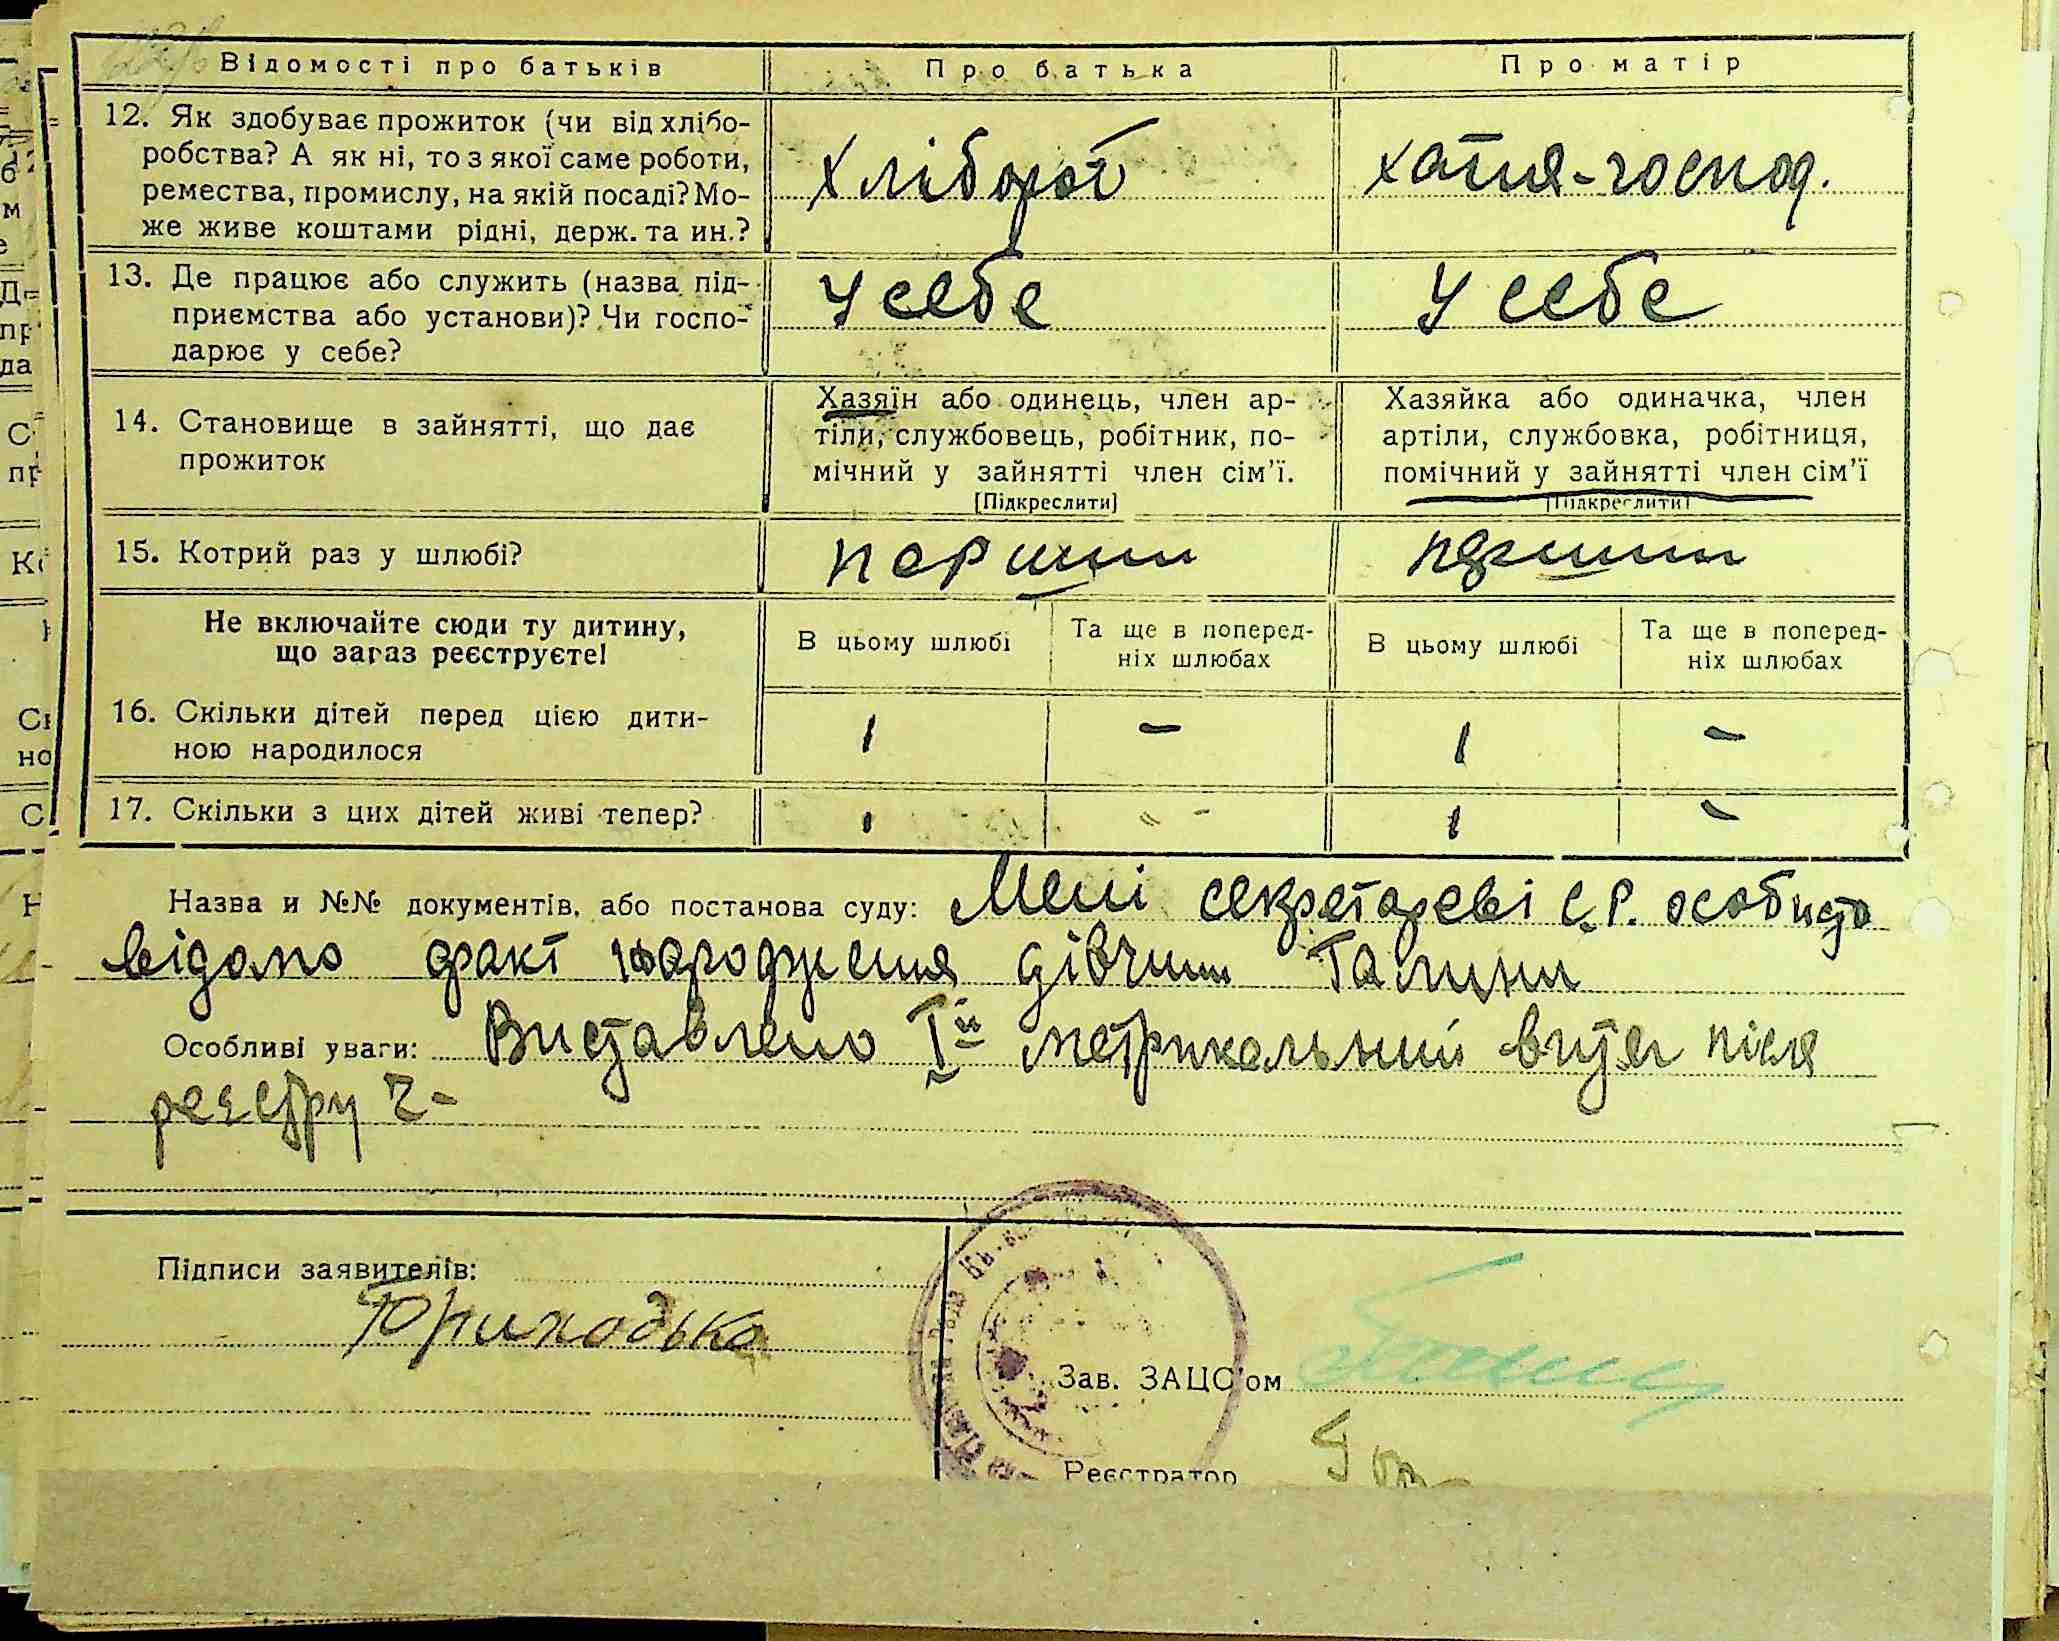 Відомості про батьків
Про батька
Про матір
12. Як здобуває прожиток (чи від хлібо-
робства? А як ні, то з якої саме роботи,
ремества, промислу, на якій посаді? Мо-
же живе коштами рідні, держ. та ин.?
Хлібороб
хатня-господ.
13. Де працює або служить (назва під-
приємства або установи)? Чи госпо-
дарює у себе?
у себе
у себе
14. Становище в зайнятті, що дає
прожиток
Хазяїн або одинець, член ар-
тіли, службовець, робітник, по-
мічний у зайнятті член сім'ї.
[Підкреслити]
Хазяйка або одиначка, член
артіли, службовка, робітниця,
помічний у зайнятті член сім'ї
[Підкреслити]
15. Котрий раз у шлюбі?
перший
перший
Не включайте сюди ту дитину,
що зараз реєструєте!
В цьому шлюбі
Та ще в поперед-
ніх шлюбах
В цьому шлюбі
Та ще в поперед-
ніх шлюбах
16. Скільки дітей перед цією дити-
ною народилося
1
-
1
-
17. Скільки з цих дітей живі тепер?
1
-
1
-
Назва и №№ документів, або постанова суду: Мені секретареві С.Р. особисто
відомо факт народження дівчини Галини
Особливі уваги: Виставлено I-й метрикальный витяг після
реєстру ч-
Підписи заявителів:
Приходько
Зав. ЗАЦС'ом
Реєстратор